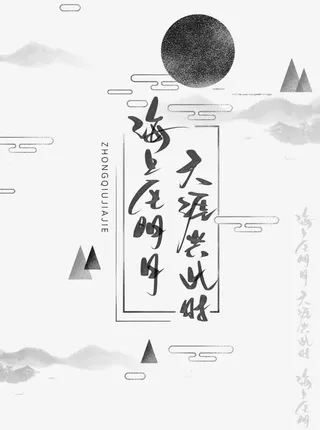 海上生明月
天涯共此时
ZHONGQIUJIAJIE
海上生明月 天涯共此时 海上生明月